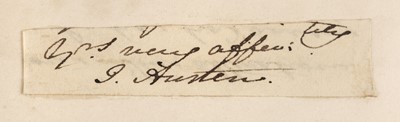 Yrs very affec:tely
J. Austen.